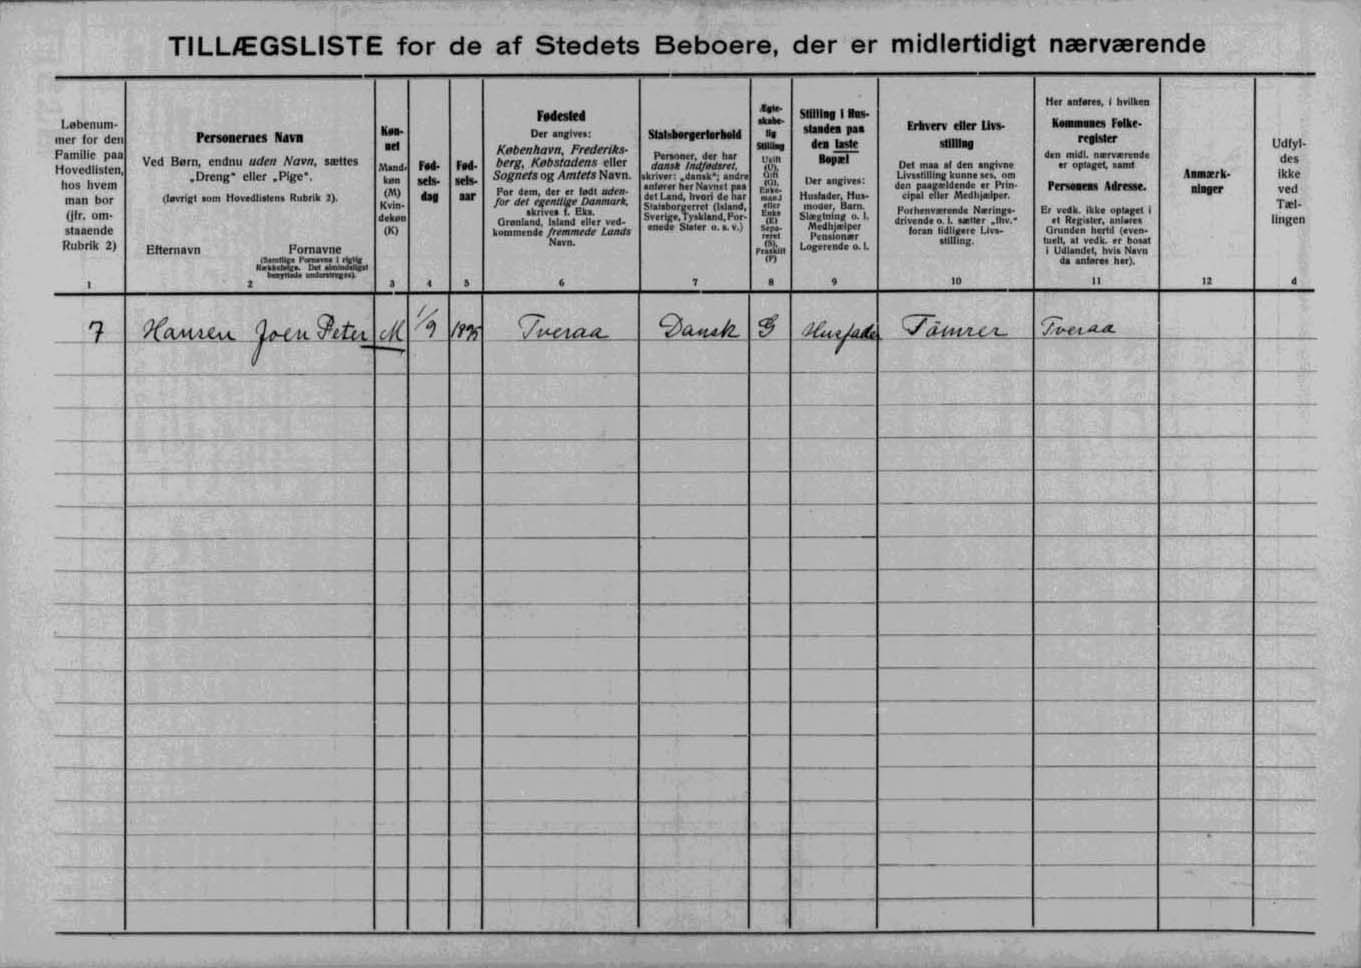 TILLÆGSLISTE for de af Stedets Beboere, der er midlertidigt nærværende
Løbenum-
mer for den
Familie paa
Hovedlisten,
hos hvem
man bor
(jfr. om-
staaende
Rubrik 2)
1
Personernes Navn
Ved Børn, endnu uden Navn, sættes
„Dreng“ eller „Pige“.
(Iøvrigt som Hovedlistens Rubrik 2).
Efternavn Fornavne
(Samtlige Fornavne i rigtig
Rækkefølge. Det almindeligst
benyttede understreges).
2
Køn-
net
Mand-
køn
(M)
Kvin-
dekøn
(K)
3
Fød-
sels-
dag
4
Fød-
sels-
aar
5
Fødested
Der angives:
København, Frederiks-
berg, Købstadens eller
Sognets og Amtets Navn.
For dem, der er født uden-
for det egentlige Danmark,
skrives f. Eks.
Grønland, Island eller ved-
kommende fremmede Lands
Navn.
6
Statsborgerforhold
Personer, der har
dansk Indfødsret,
skriver: „dansk“; andre
anfører her Navnet paa
det Land, hvori de har
Statsborgerret (Island,
Sverige, Tyskland, For-
enede Stater o. s. v.)
7
Ægte-
skabe-
lig
Stilling
Ugift
(U),
Gift
(G),
Enke-
mand
eller
Enke
(E)
Sepa-
reret
(S),
Fraskilt
(F)
8
Stilling i Hus-
standen paa
den faste
Bopæl
Der angives:
Husfader, Hus-
moder, Barn,
Slægtning o. l.
Medhjælper
Pensionær
Logerende o. l.
9
Erhverv eller Livs-
stilling
Det maa af den angivne
Livsstilling kunne ses, om
den paagældende er Prin-
cipal eller Medhjælper.
Forhenværende Nærings-
drivende o. l. sætter „fhv.“
foran tidligere Livs-
stilling.
10
Her anføres, i hvilken
Kommunes Folke-
register
den midl. nærværende
er optaget, samt
Personens Adresse.
Er vedk. ikke optaget i
et Register, anføres
Grunden hertil (even-
tuelt, at vedk. er bosat
i Udlandet, hvis Navn
da anføres her).
11
Anmærk-
ninger
12
Udfyl-
des
ikke
ved
Tæl-
lingen
d
7 Hansen Joen Peter M 1/9 1895 Tveraa Dansk G Husfader Tömrer Tveraa